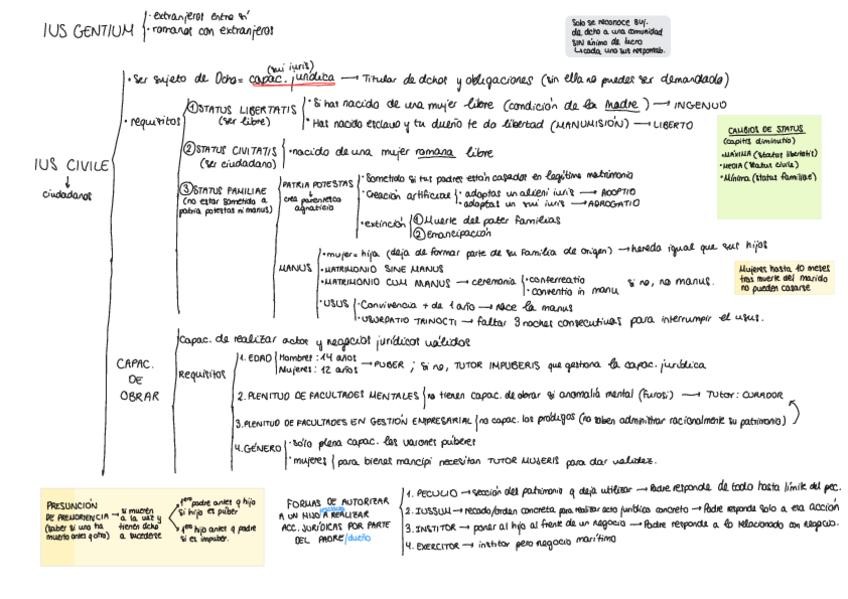 IUS GENTIUM
· extranjeros entre sí
· romanos con extranjeros
Solo se reconoce suj.
de dcho a una comunidad
SIN ánimo de lucro
Licada uno sus responsab.
IUS CIVILE
↓
ciudadanos
(sui iuris)
· Ser sujeto de Dcho = capac. jurídica → Titular de dchos y obligaciones (sin ella no puedes ser demandado)
· requisitos
① STATUS LIBERTATIS
(ser libre)
· Si has nacido de una mujer libre (condición de la madre) → INGENUO
· Has nacido esclavo y tu dueño te da libertad (MANUMISIÓN) → LIBERTO
② STATUS CIVITATIS
(ser ciudadano)
· nacido de una mujer romana libre
③ STATUS FAMILIAE
(no estar sometido a
patria potestas ni manus)
PATRIA POTESTAS
↓
crea parentesco
agnaticio
· Sometido si tus padres están casados en legítimo matrimonio
· Creación artificial
· adoptas un alieni iuris → ADOPTIO
· adoptas un sui iuris → ADROGATIO
· extinción
① Muerte del pater familias
② Emancipación
CAMBIOS DE STATUS
(capitis diminutio)
· MÁXIMA (status libertatis)
· MEDIA (status civile)
· Mínima (status familiae)
MANUS
· mujer = hija (deja de formar parte de su familia de origen) → hereda igual que sus hijos
· MATRIMONIO SINE MANUS
· MATRIMONIO CUM MANUS → ceremonia
· conferreatio
· conventio in manu
si no, no manus.
· USUS
· Convivencia + de 1 año → nace la manus
· USURPATIO TRINOCTI → faltar 3 noches consecutivas para interrumpir el usus.
Mujeres hasta 10 meses
tras muerte del marido
no pueden casarse
CAPAC.
DE
OBRAR
Capac. de realizar actos y negocios jurídicos válidos
Requisitos
1. EDAD
Hombres: 14 años
Mujeres: 12 años
→ PUBER ; si no, TUTOR IMPUBERIS que gestiona la capac. jurídica
2. PLENITUD DE FACULTADES MENTALES
no tienen capac. de obrar si anomalía mental (Furosi) → Tutor: CURADOR
3. PLENITUD DE FACULTADES EN GESTIÓN EMPRESARIAL
no capac. los prodigos (no saben administrar racionalmente su patrimonio)
4. GÉNERO
· sólo plena capac. los varones púberes
· mujeres
para bienes mancipi necesitan TUTOR MUJERIS para dar validez.
PRESUNCIÓN
DE PREMORIENCIA
(saber si uno ha
muerto antes q otro)
→ si mueren
a la vez y
tienen dcho
a sucederse
1ero padre antes q hijo
si hijo es púber
1ero hijo antes q padre
si es impuber.
FORMAS DE AUTORIZAR
A UN HIJO A REALIZAR
ACC. JURÍDICAS POR PARTE
DEL PADRE/dueño
1. PECULIO → sección del patrimonio q deja utilizar → Padre responde de todo hasta límite del pec.
2. IUSSUM → recado/orden concreta para realizar acto jurídico concreto → Padre responde solo a esa acción
3. INSTITOR → poner al hijo al frente de un negocio → Padre responde a lo relacionado con negocio.
4. EXERCITOR → institor pero negocio marítimo